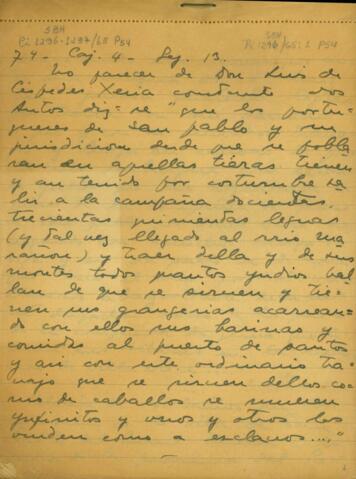 SBH
Pi 1296-1297/65 P54
SBH
Pi 1296/65:1 P54
74 - Caj. 4 - Leg. 13.
Un parecer de Don Luis de
Céspedes Xeria constante dos
Autos diz-se "que los portu-
gueses de san pablo y su
jurisdicion desde que se pobla
ran en aquellas tierras tienen
y an tenido por costumbre sa-
lir a la campaña docientas,
trecientas quinientas leguas
(y tal vez llegado al rrio ma-
rañon) y traer della y de sus
montes todos quantos yndios hal-
lan de que se sirven y tie-
nen sus grangerias acarrean-
do con ellos sus harinas y
comidas al puerto de santos
y asi con este ordinario tra-
vajo que se sirven dellos co-
mo de caballos se mueren
ynfinitos y unos y otros los
venden como a esclavos...."